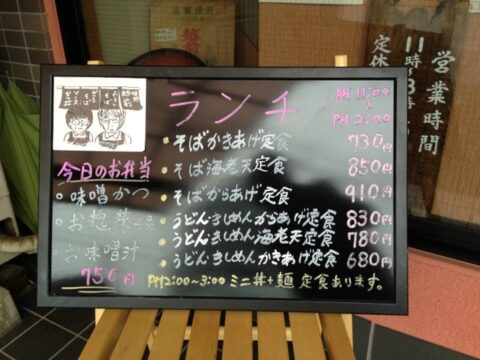 営業時間
11時
定休
ランチ
AM 11:00
〜
PM 2:00
・そばかきあげ定食 730円
・そば海老天定食 850円
・そばからあげ定食 910円
・うどん・きしめんからあげ定食 830円
・うどん・きしめん海老天定食 780円
・うどん・きしめんかきあげ定食 680円
PM2:00〜3:00 ミニ丼+麺 定食あります。
今日のお弁当
○味噌かつ
○お惣菜
○お味噌汁
750円